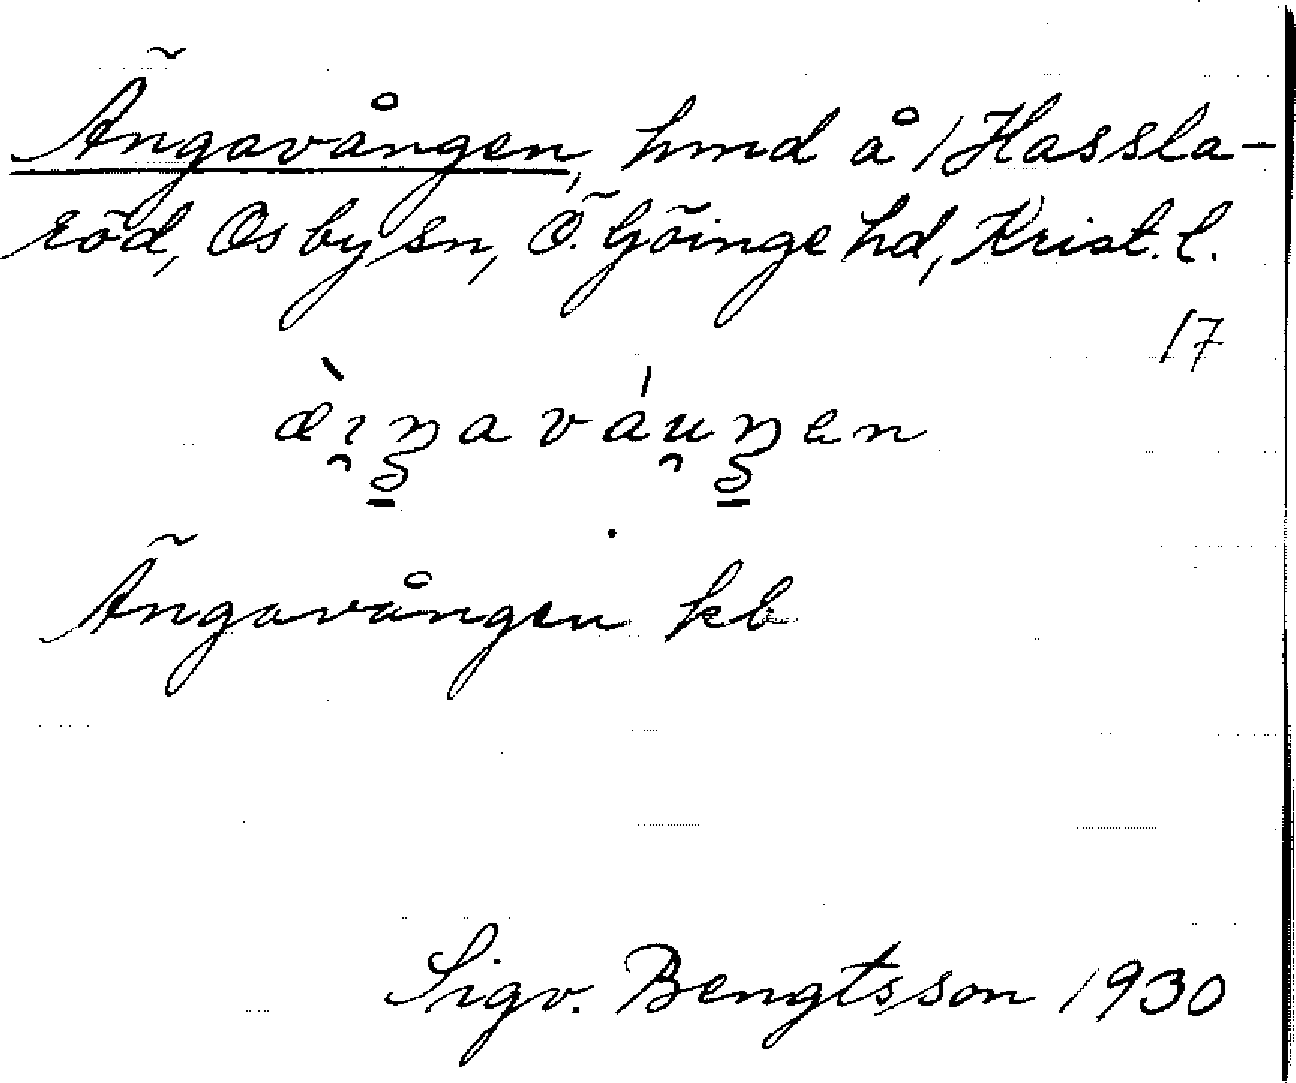 Ängavången, hmd å /Hassla-
röd, Osby sn, Ö. Göinge hd, Krist. l.
17
Ängavången kb
Sigv. Bengtsson 1930